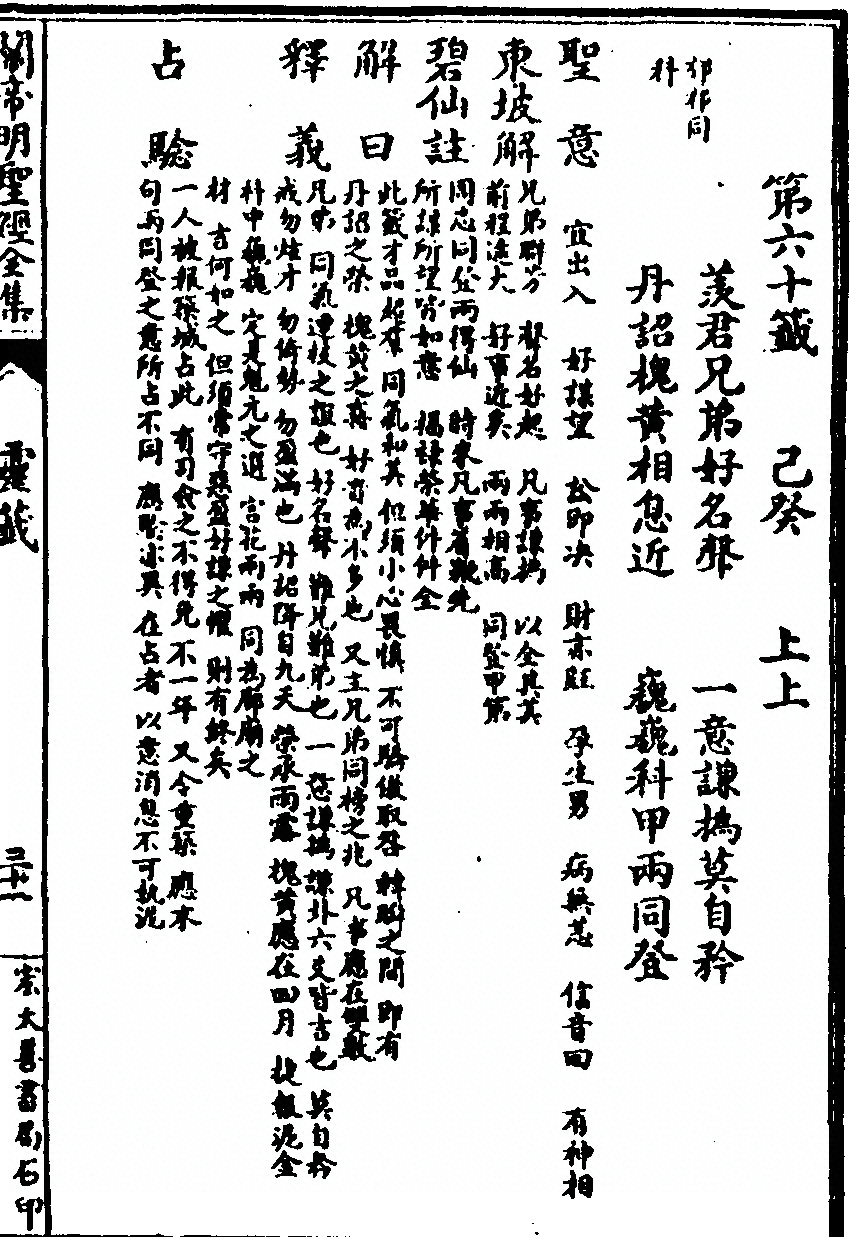 第六十籤 己癸 上上
羨君兄弟好名聲 一意謙撝莫自矜
丹詔槐黃相息近 巍巍科甲兩同登
郤郤同
科
聖意 宜出入 好謀望 訟即决 財亦旺 孕生男 病無恙 信音回 有神相
東坡解 兄弟聯芳 聲名好起 凡事謙撝 以全其美
前程遠大 好事近矣 兩兩相高 同登甲第
碧仙註 同志同登兩得仙 時來凡事着鞭先
所謀所望皆如意 撝謙榮華件件全
解曰 此籤才品超羣 同氣和美 但須小心畏慎 不可驕傲取咎 轉盼之間 即有
丹詔之榮 槐黃之喜 好音為不多也 又主兄弟同榜之兆 凡事應在雙數
釋義 兄弟 同氣連枝之誼也 好名聲 難兄難弟也 一意謙撝 謙卦六爻皆吉也 莫自矜
戒勿炫才 勿倚勢 勿盈滿也 丹詔降自九天 榮承雨露 槐黃應在四月 捷報泥金
科中巍巍 定是魁元之選 宮花兩兩 同為廊廟之
材 吉何如之 但須常守惡盈好謙之懼 則有終矣
占驗 一人被報築城占此 有司僉之不得免 不一年 又令重築 應末
句兩同登之意所占不同 應驗亦異 在占者 以意消息不可執泥
關帝明聖經全集
靈籤
三十一
崇文善書局石印